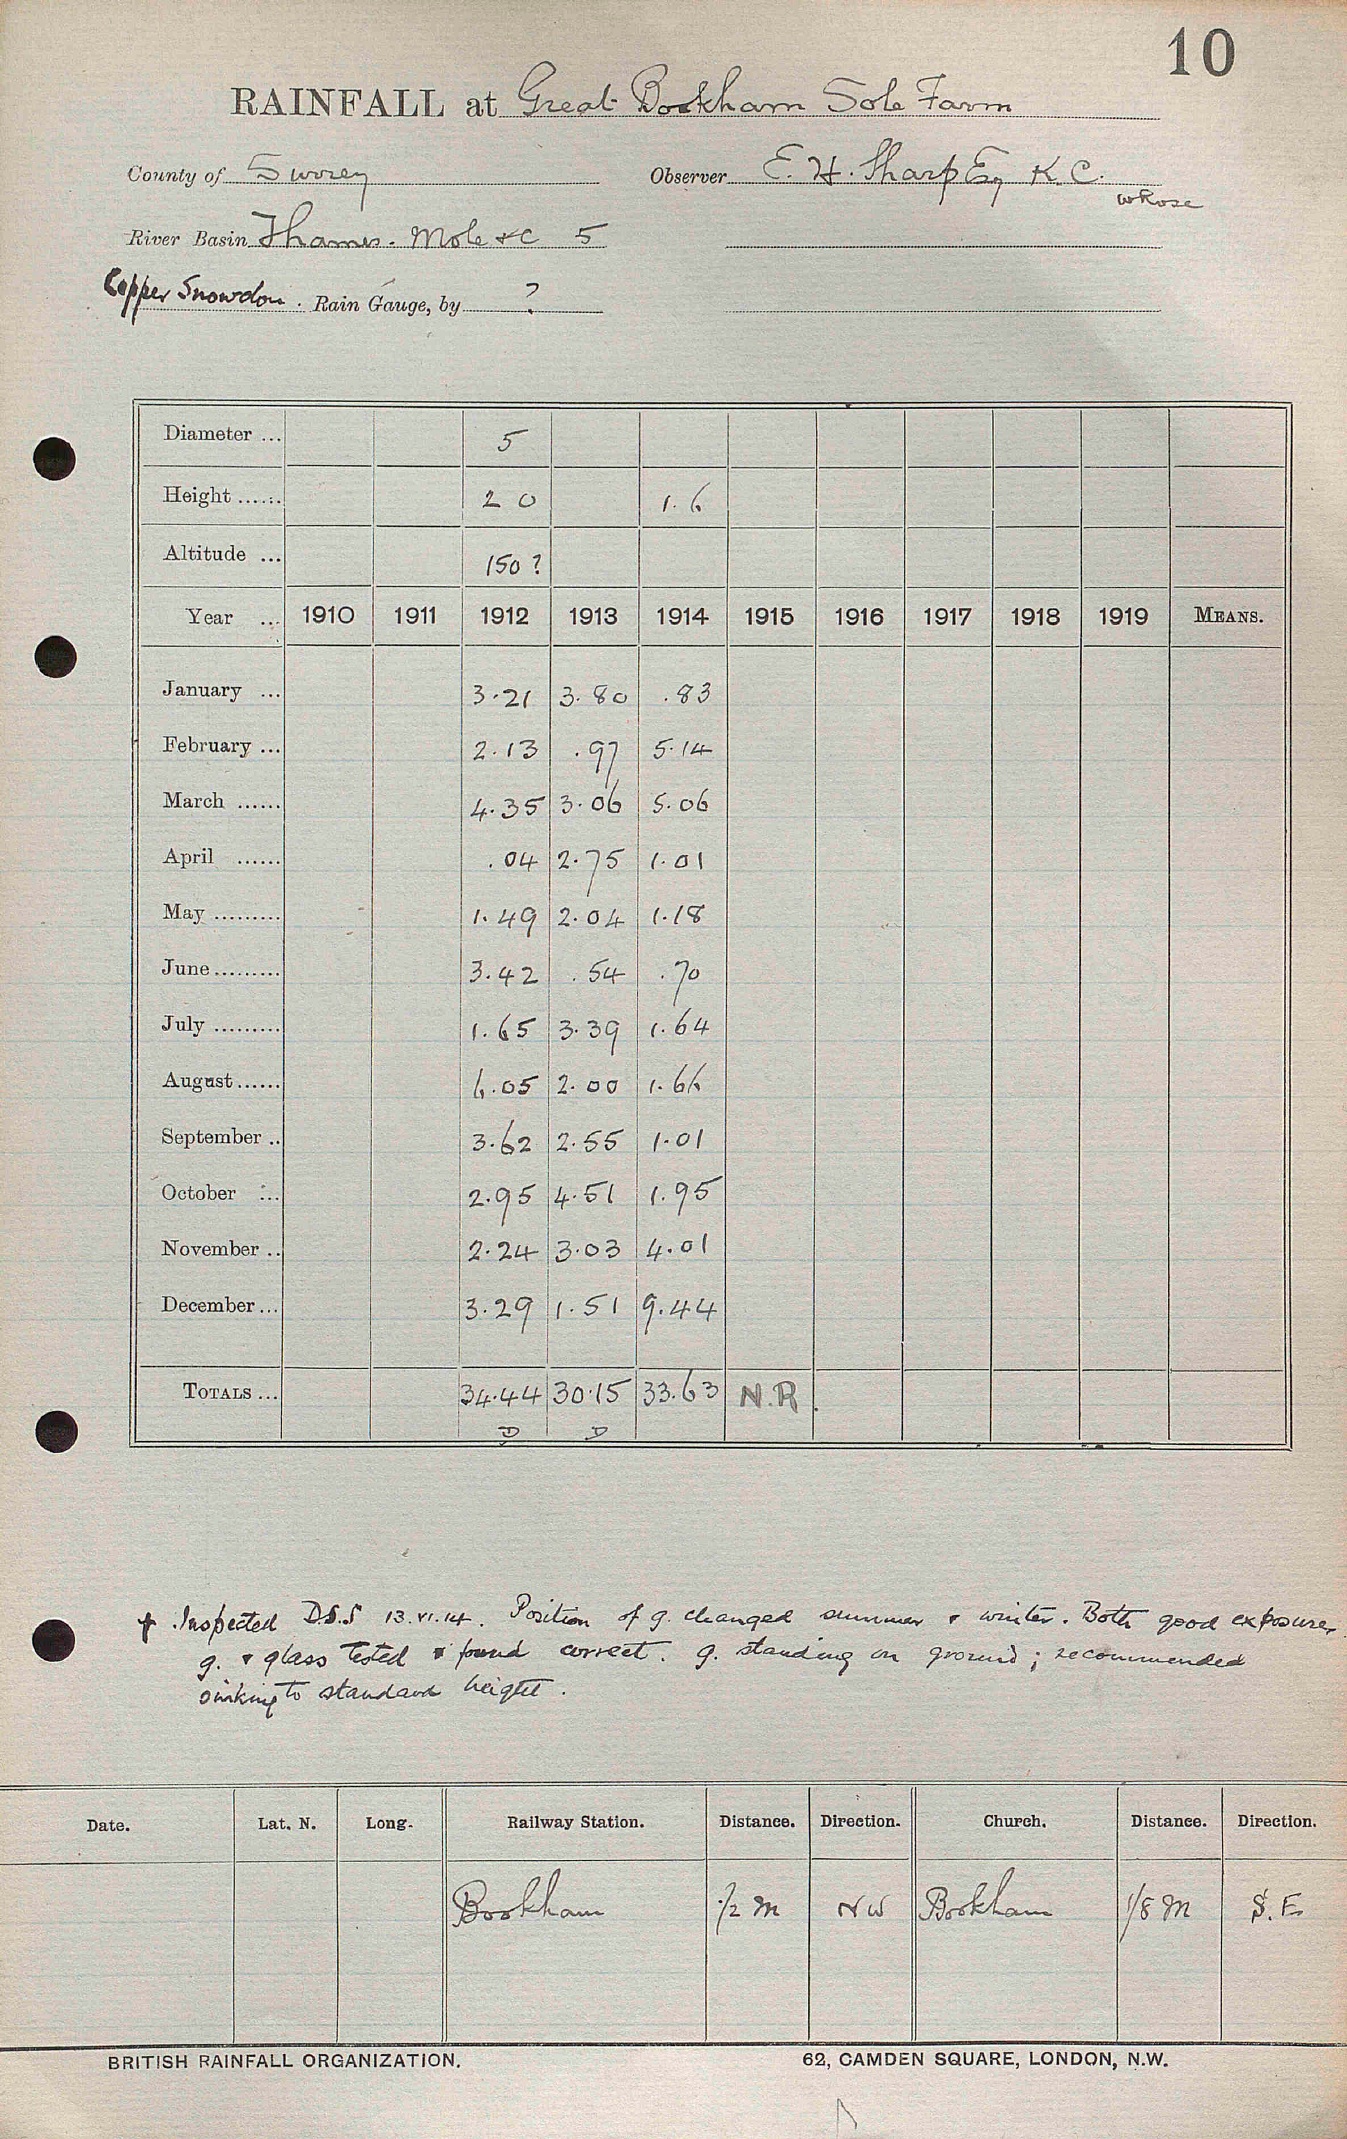 10
RAINFALL at Great Bookham Sole Farm
County of Surrey Observer E. H. Sharp Esq K.C.
whose
River Basin Thames. Mole &c 5
Copper Snowdon. Rain Gauge, by ?
Diameter ... 5
Height ...... 2 0 1. 6
Altitude ... 150 ?
Year ... 1910 1911 1912 1913 1914 1915 1916 1917 1918 1919 MEANS.
January ... 3.21 3.80 .83
February ... 2.13 .97 5.14
March ...... 4.35 3.06 5.06
April ...... .04 2.75 1.01
May ......... 1.49 2.04 1.18
June ......... 3.42 .54 .70
July ......... 1.65 3.39 1.64
August ...... 6.05 2.00 1.66
September .. 3.62 2.55 1.01
October ... 2.95 4.51 1.95
November .. 2.24 3.03 4.01
December ... 3.29 1.51 9.44
TOTALS ... 34.44 30.15 33.63 N.R.
D D
† Inspected D.S.S 13.VI.14. Position of g. changed summer & winter. Both good exposures.
g. & glass tested & found correct. g. standing on ground; recommended
sinking to standard height.
Date. Lat. N. Long. Railway Station. Distance. Direction. Church. Distance. Direction.
Bookham 1/2 m NW Bookham 1/8 m S.E.
BRITISH RAINFALL ORGANIZATION. 62, CAMDEN SQUARE, LONDON, N.W.